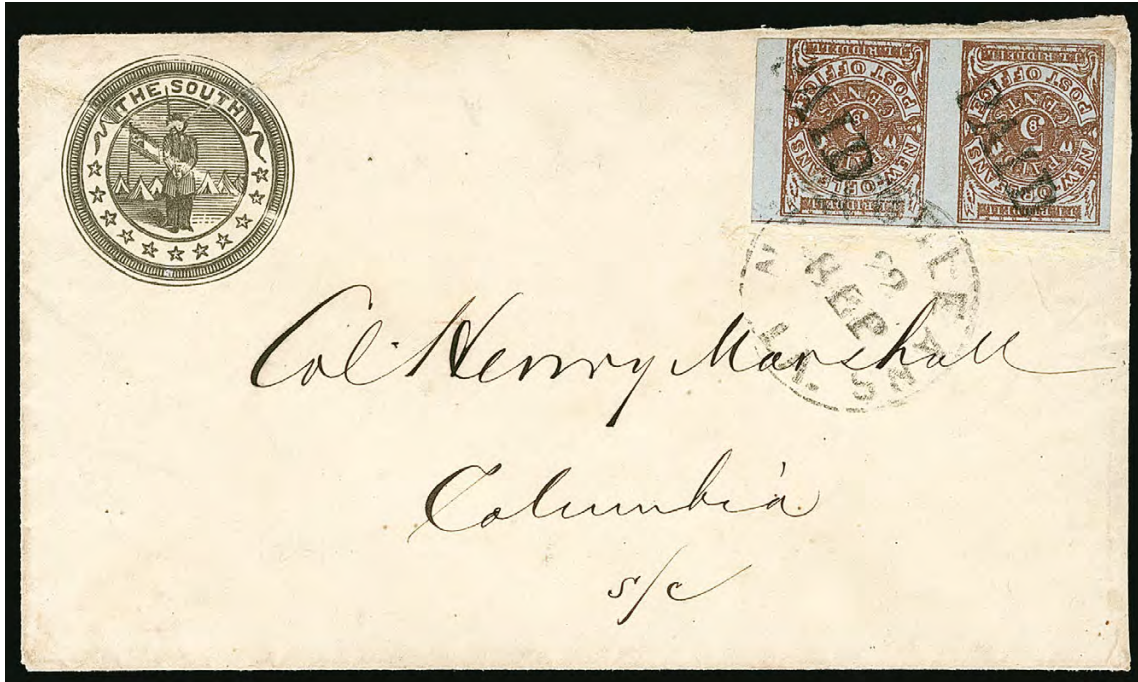 THE SOUTH
NEW ORLEANS
POST OFFICE
5
CENTS
NEW ORLEANS
POST OFFICE
5
CENTS
PAID
PAID
NEW ORLEANS
LA.
22
SEP
Col. Henry Marshall
Columbia
s/c